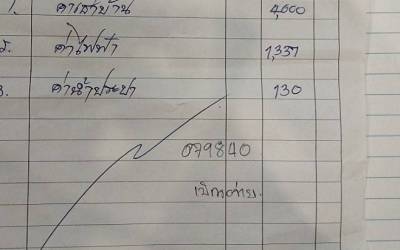 1. ค่าเช่าบ้าน 4,000
2. ค่าไฟฟ้า 1,337
3. ค่าน้ำประปา 130
079840
เบิกจ่าย.